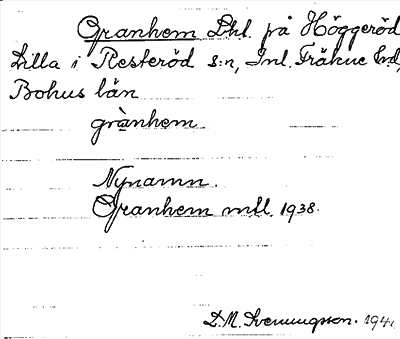 Granhem Lhl. på Höggeröd
Lilla i Resteröd s:n, Inl. Fräkne hd,
Bohus län
grànhem
Nynamn.
Granhem mtl. 1938.
D.M. Svenungsson. 1941